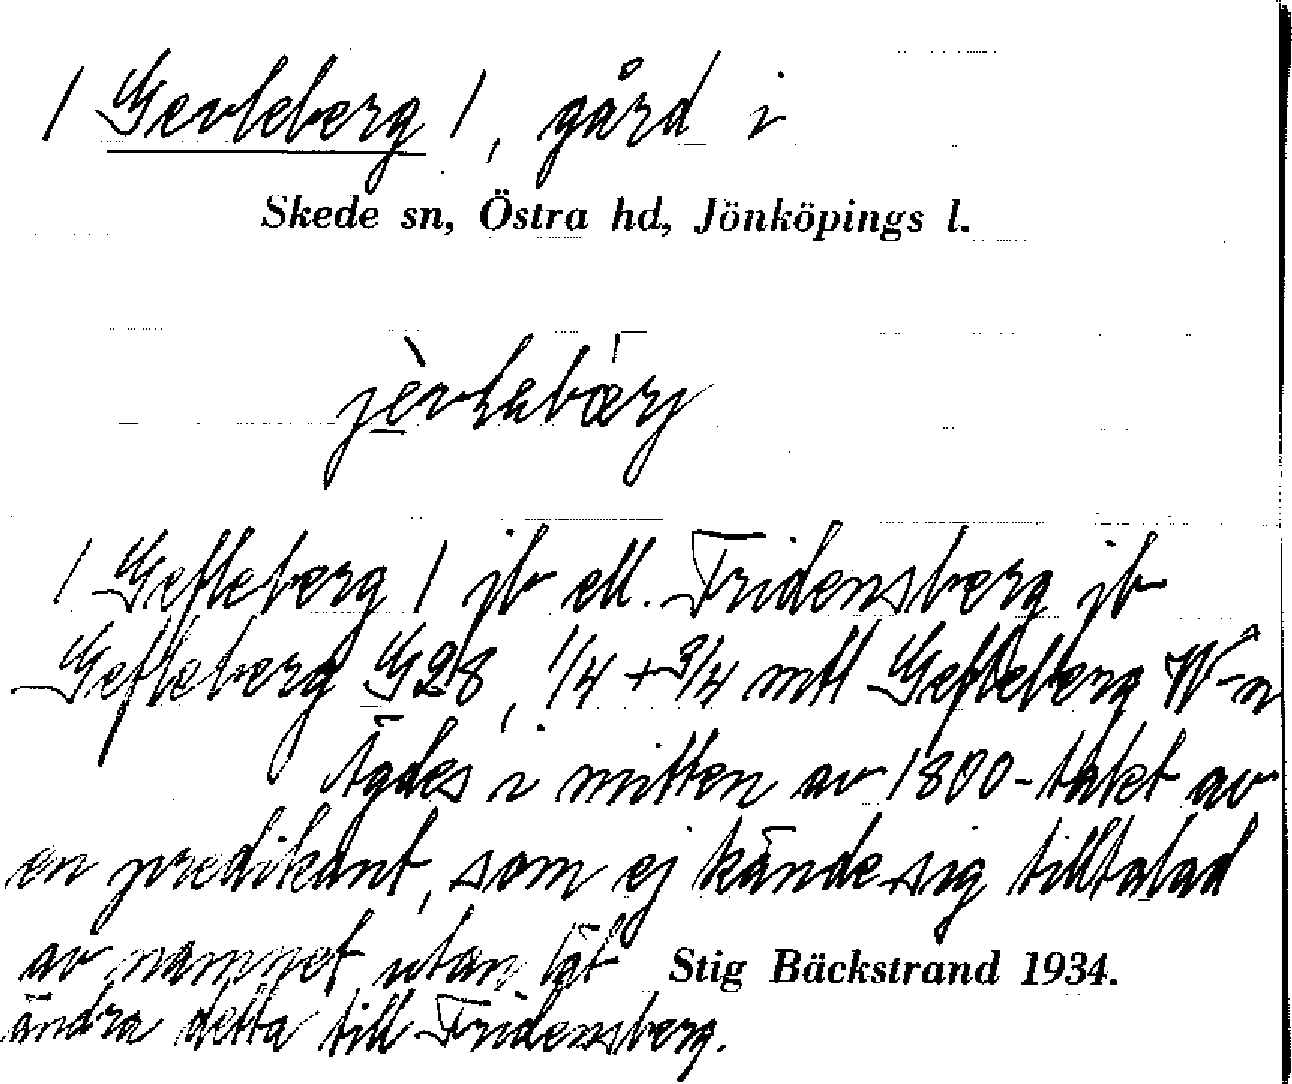 / Gevleberg /, gård i
Skede sn, Östra hd, Jönköpings l.
jèvləbærj
/ Gefleberg / jb ell. Fridensberg jb
Gefleberg G28, 1/4 + 3/4 mtl Gefleberg W-n
Ägdes i mitten av 1800-talet av
en predikant, som ej kände sig tilltalad
av namnet utan lät
Stig Bäckstrand 1934.
ändra detta till Fridensberg.